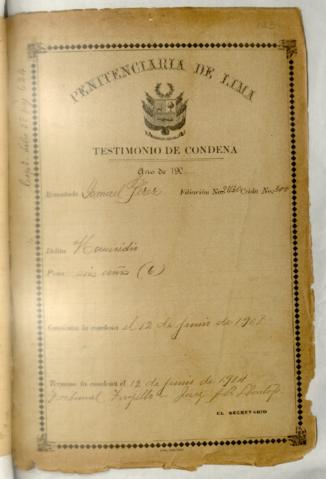 PENITENCIARIA DE LIMA
TESTIMONIO DE CONDENA
Año de 190
Rematado Ismael Pérez Filiación No. Celda No.
Delito Homicidio
Pena seis años (6)
Comienza la condena el 12 de junio de 1908
Termina la condena el 12 de junio de 1914
Tribunal Trujillo - Juez
EL SECRETARIO